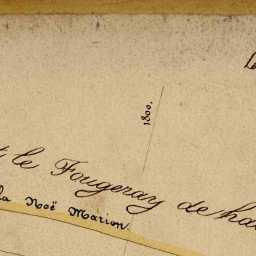 1800.
le Fougeray de ha
la Noë Marion.